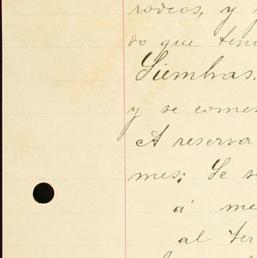 rodeos, y
do que ten
Siembras.
y se comen
A reserva
mes; Se s
á me
al ter